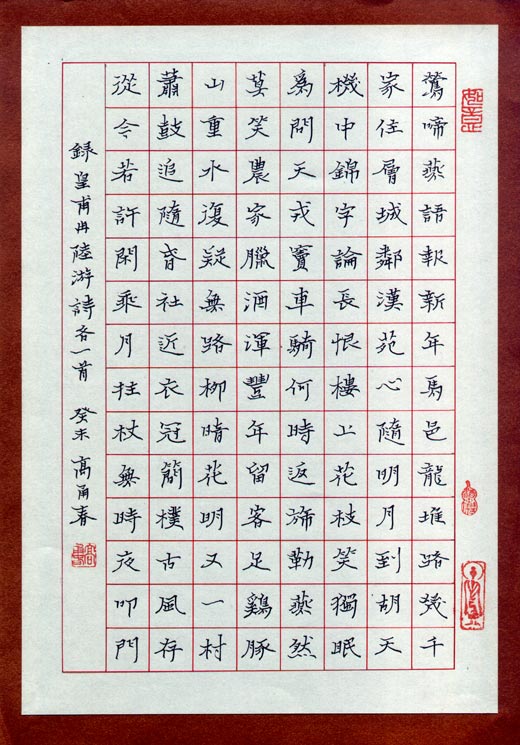 鶯啼燕語報新年馬邑龍堆路幾千
家住層城鄰漢苑心隨明月到胡天
機中錦字論長恨樓上花枝笑獨眠
爲問天戎竇車騎何時返旆勒燕然
莫笑農家臘酒渾豐年留客足鷄豚
山重水復疑無路柳暗花明又一村
蕭鼓追隨春社近衣冠簡樸古風存
從今若許閑乘月拄杖無時夜叩門
録皇甫冉陸游詩各一首 癸未 高甬春